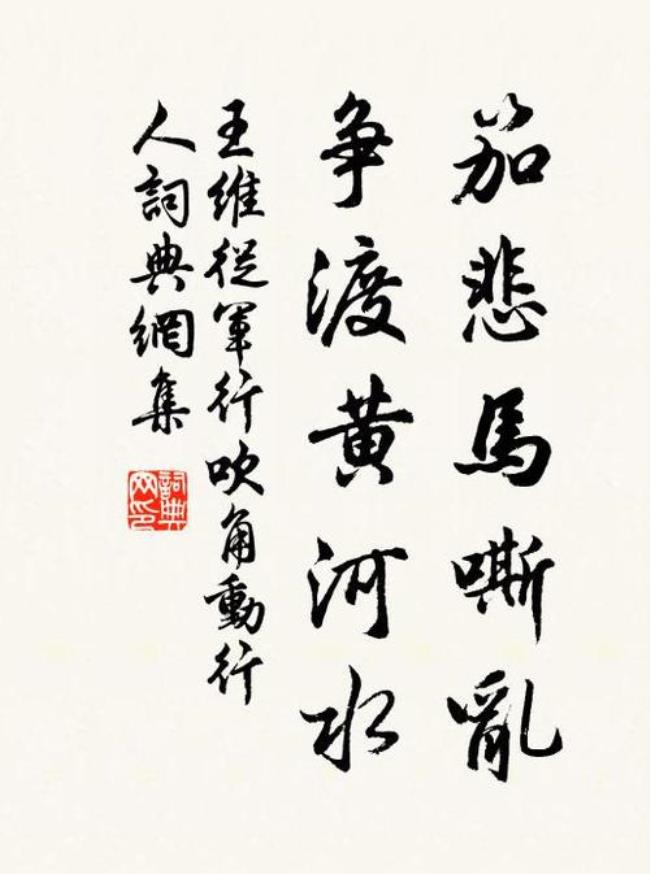 笳悲馬嘶亂
爭渡黃河水
王維從軍行吹角動行
人詞典網集
詞典
网印